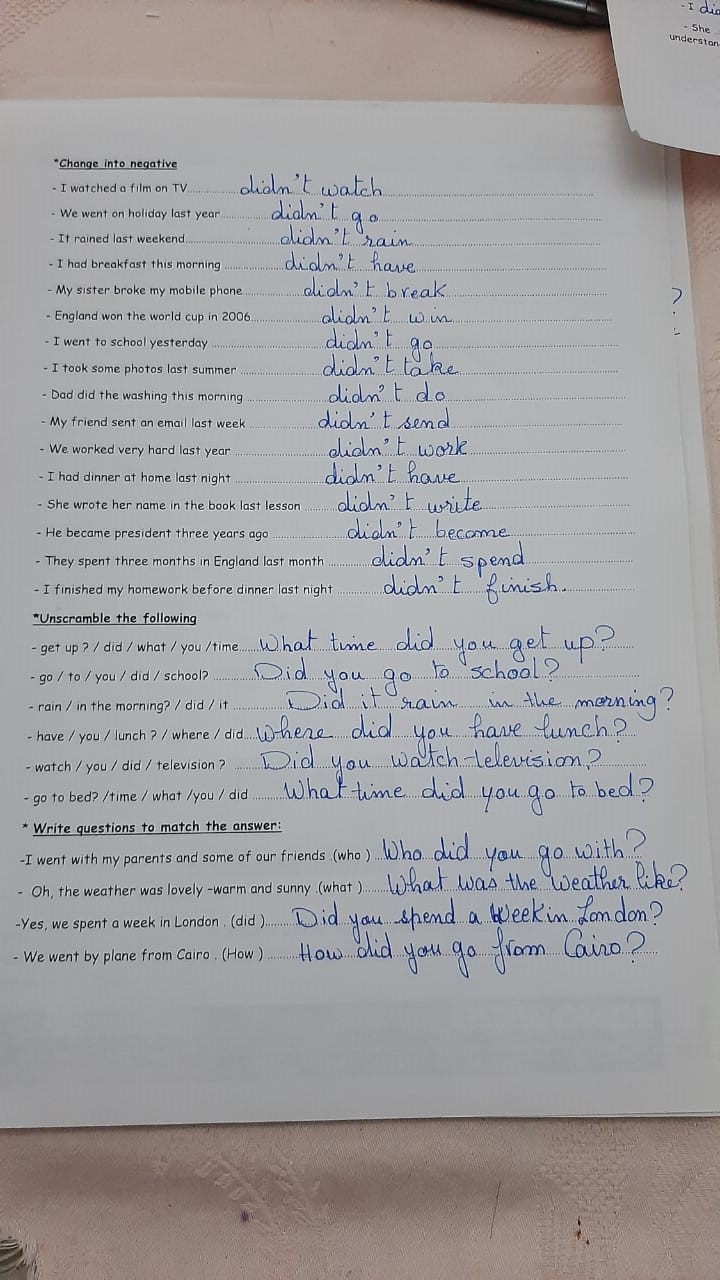 - I dic
- She
understan
*Change into negative
- I watched a film on TV.......... didn't watch
- We went on holiday last year.......... didn't go
- It rained last weekend.......... didn't rain
- I had breakfast this morning .......... didn't have
- My sister broke my mobile phone.......... didn't break
- England won the world cup in 2006.......... didn't win
- I went to school yesterday .......... didn't go
- I took some photos last summer .......... didn't take
- Dad did the washing this morning .......... didn't do
- My friend sent an email last week .......... didn't send
- We worked very hard last year .......... didn't work
- I had dinner at home last night .......... didn't have
- She wrote her name in the book last lesson .......... didn't write
- He became president three years ago .......... didn't become
- They spent three months in England last month .......... didn't spend
- I finished my homework before dinner last night .......... didn't finish.
*Unscramble the following
- get up ? / did / what / you /time..... What time did you get up?
- go / to / you / did / school? .......... Did you go to school?
- rain / in the morning? / did / it .......... Did it rain in the morning?
- have / you / lunch ? / where / did.... Where did you have lunch?
- watch / you / did / television ? ...... Did you watch television?
- go to bed? /time / what /you / did ........ What time did you go to bed?
* Write questions to match the answer:
-I went with my parents and some of our friends .(who ).. Who did you go with?
- Oh, the weather was lovely -warm and sunny .(what )...... What was the weather like?
-Yes, we spent a week in London . (did )....... Did you spend a week in London?
- We went by plane from Cairo . (How )......... How did you go from Cairo?